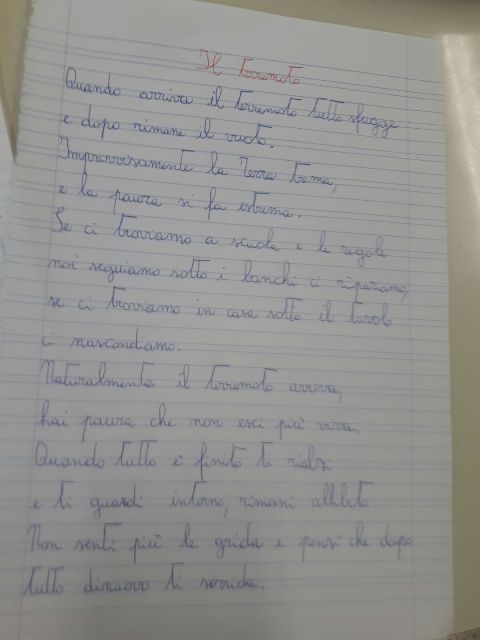 Il terremoto
Quando arriva il terremoto tutto sfugge
e dopo rimane il vuoto.
Improvvisamente la Terra trema,
e la paura si fa estrema.
Se ci troviamo a scuola e le regole
noi seguiamo sotto i banchi ci ripariamo,
se ci troviamo in casa sotto il tavolo
ci nascondiamo.
Naturalmente il terremoto arriva,
hai paura che non esci più viva.
Quando tutto è finito ti rialzi
e ti guardi intorno, rimani allibito.
Non senti più le grida e pensi che dopo
tutto dinuovo ti sorrida.